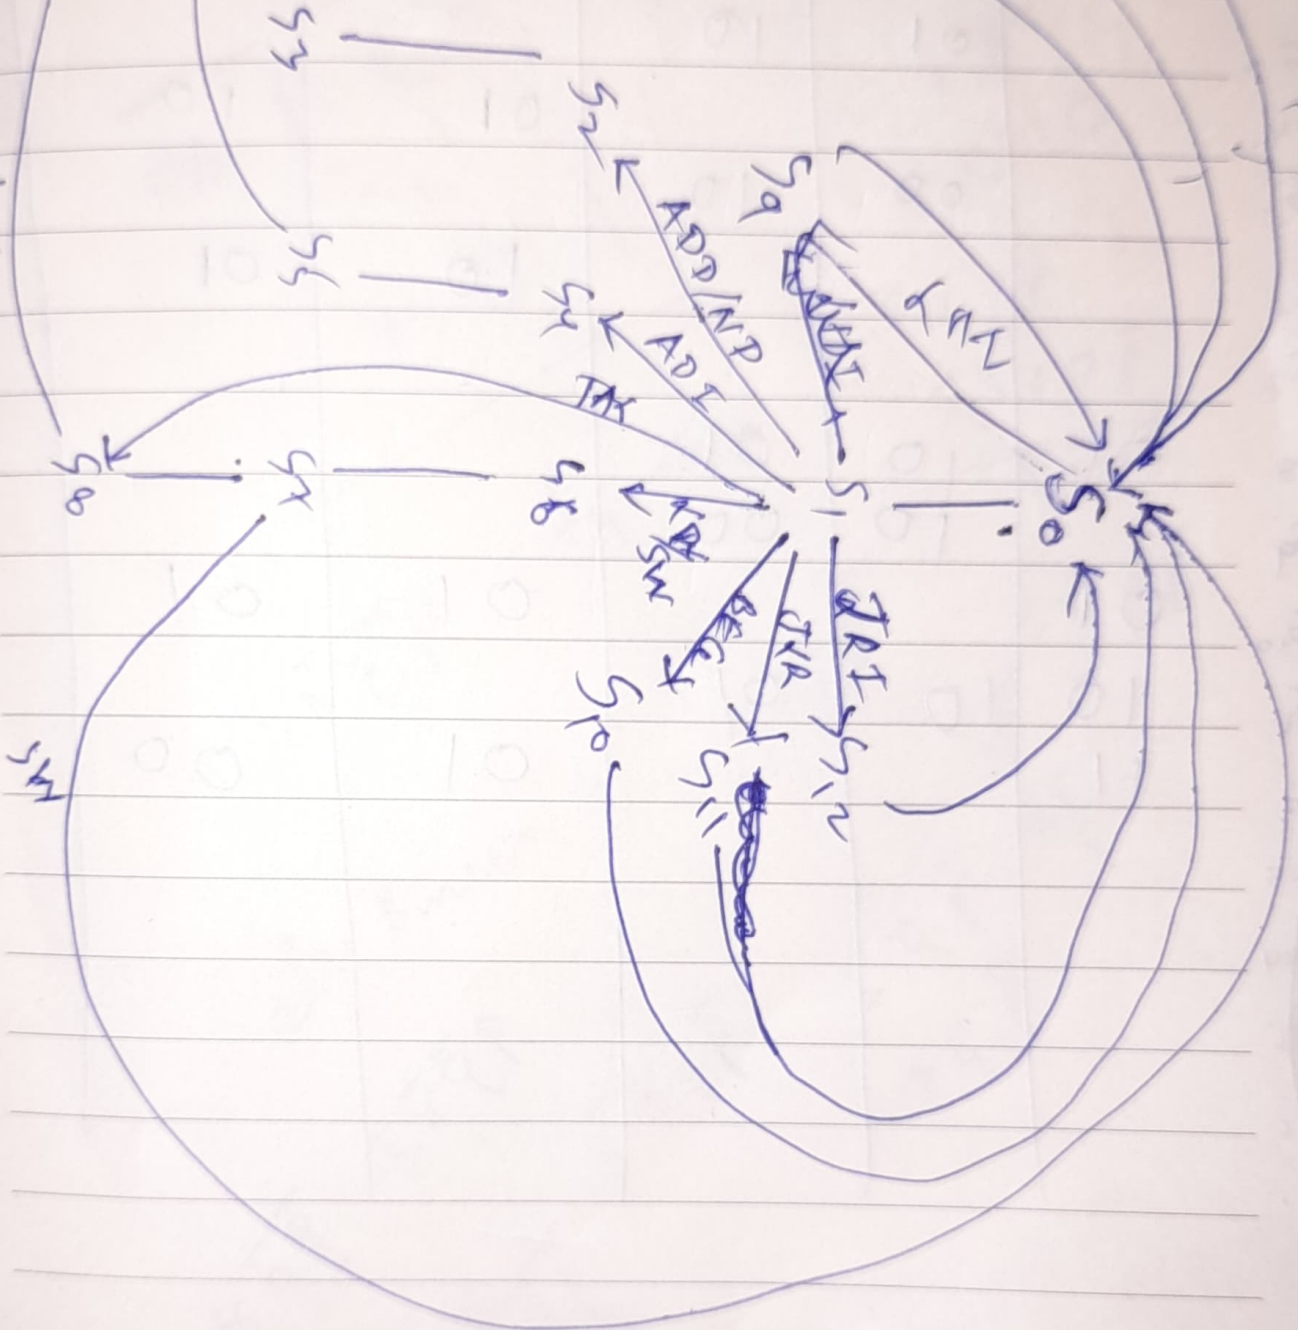 S0
S1
LHI
S9
ADD/ND
S2
S3
ADI
S4
S5
S6
S7
S8
SW
SW
BEQ
S10
S11
JRI
S12